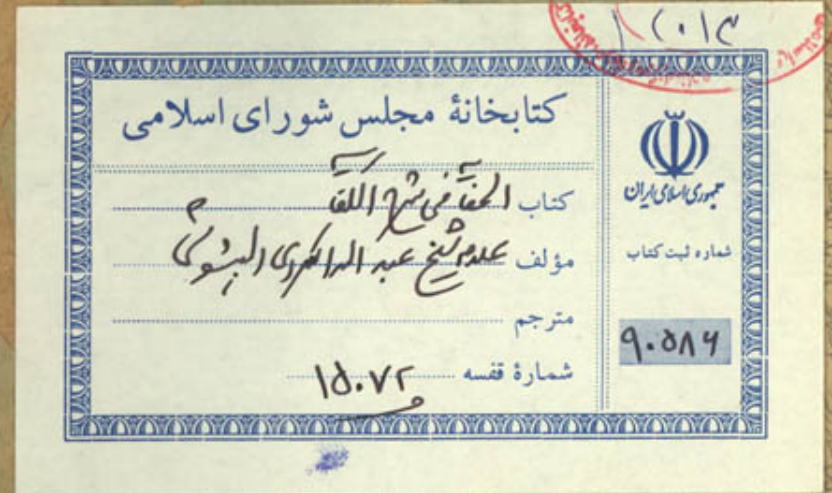 ۱۲۰۱۳
کتابخانهٔ مجلس شورای اسلامی
کتاب الحفایة فی شرح الکفایة
مؤلف علامه شیخ عبد الله الکردی البیتوشی
مترجم
شمارهٔ قفسه ۱۵۰۷۲
جمهوری اسلامی ایران
شماره ثبت کتاب
۹۰۵۸۶